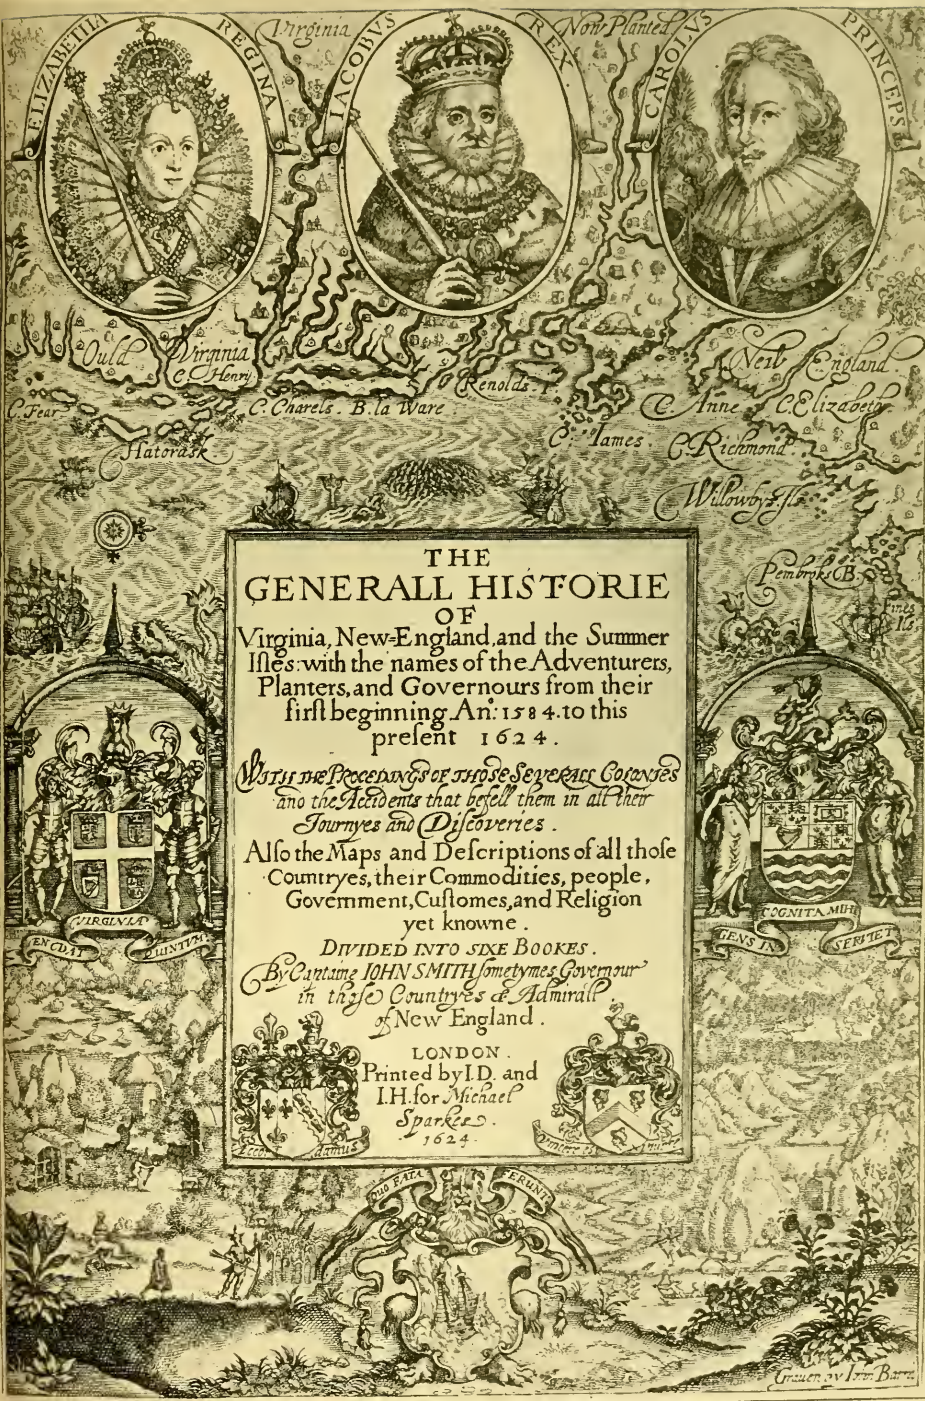 ELIZABETHA REGINA
Virginia
IACOBUS REX
Now Planted
CAROLVS PRINCEPS
Ould Virginia
C. Henry
C. Fear
Hatorask
C. Charels. B. la Ware
Renolds. I.
C. Iames.
New England
C. Anne
C. Elizabeth
C. Richmond.
Willowby's Ils
Pembroks B.
THE
GENERALL HISTORIE
OF
Virginia, New-England, and the Summer
Iſles: with the names of the Adventurers,
Planters, and Governours from their
firſt beginning. Anº: 1584. to this
preſent 1624.
WITH THE PROCEDINGS OF THOSE SEVERALL COLONIES
and the Accidents that befell them in all their
Journyes and Diſcoveries.
Alſo the Maps and Deſcriptions of all thoſe
Countryes, their Commodities, people,
Government, Cuſtomes, and Religion
yet knowne.
DIVIDED INTO SIXE BOOKES.
By Captaine IOHN SMITH ſometymes Governour
in thoſe Countryes & Admirall
of New England.
LONDON.
Printed by I.D. and
I.H. for Michael
Sparkes.
1624.
EN DAT VIRGINIA QUINTVM
GENS IN COGNITA MIHI SERVIET
QUO FATA FERUNT